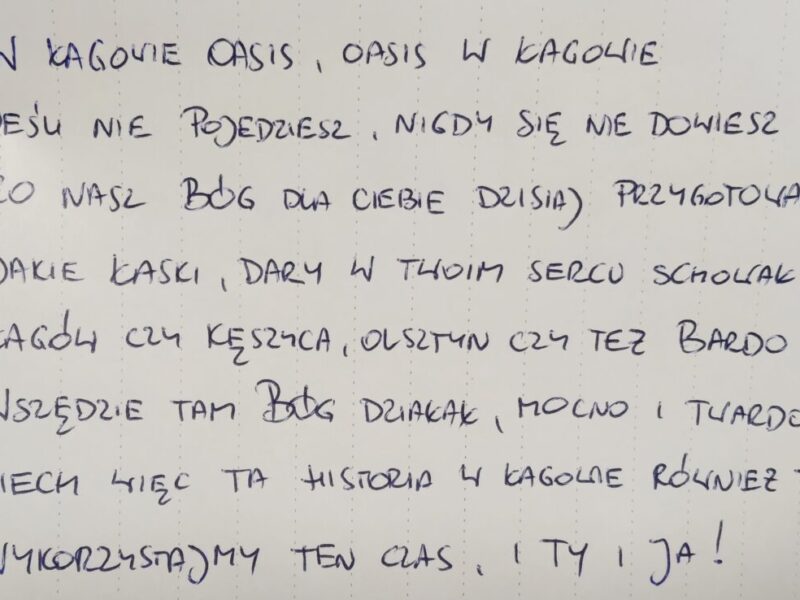 W ŁAGOWIE OASIS, OASIS W ŁAGOWIE
JEŚLI NIE POJEDZIESZ, NIGDY SIĘ NIE DOWIESZ
CO NASZ BÓG DLA CIEBIE DZISIAJ PRZYGOTOWA
JAKIE ŁASKI, DARY W TWOIM SERCU SCHOWAŁ
ŁAGÓW CZY KĘSZYCA, OLSZTYN CZY TEŻ BARDO
WSZĘDZIE TAM BÓG DZIAŁAŁ, MOCNO I TWARDO
NIECH WIĘC TA HISTORIA W ŁAGOWIE RÓWNIEŻ
WYKORZYSTAJMY TEN CZAS, I TY I JA!